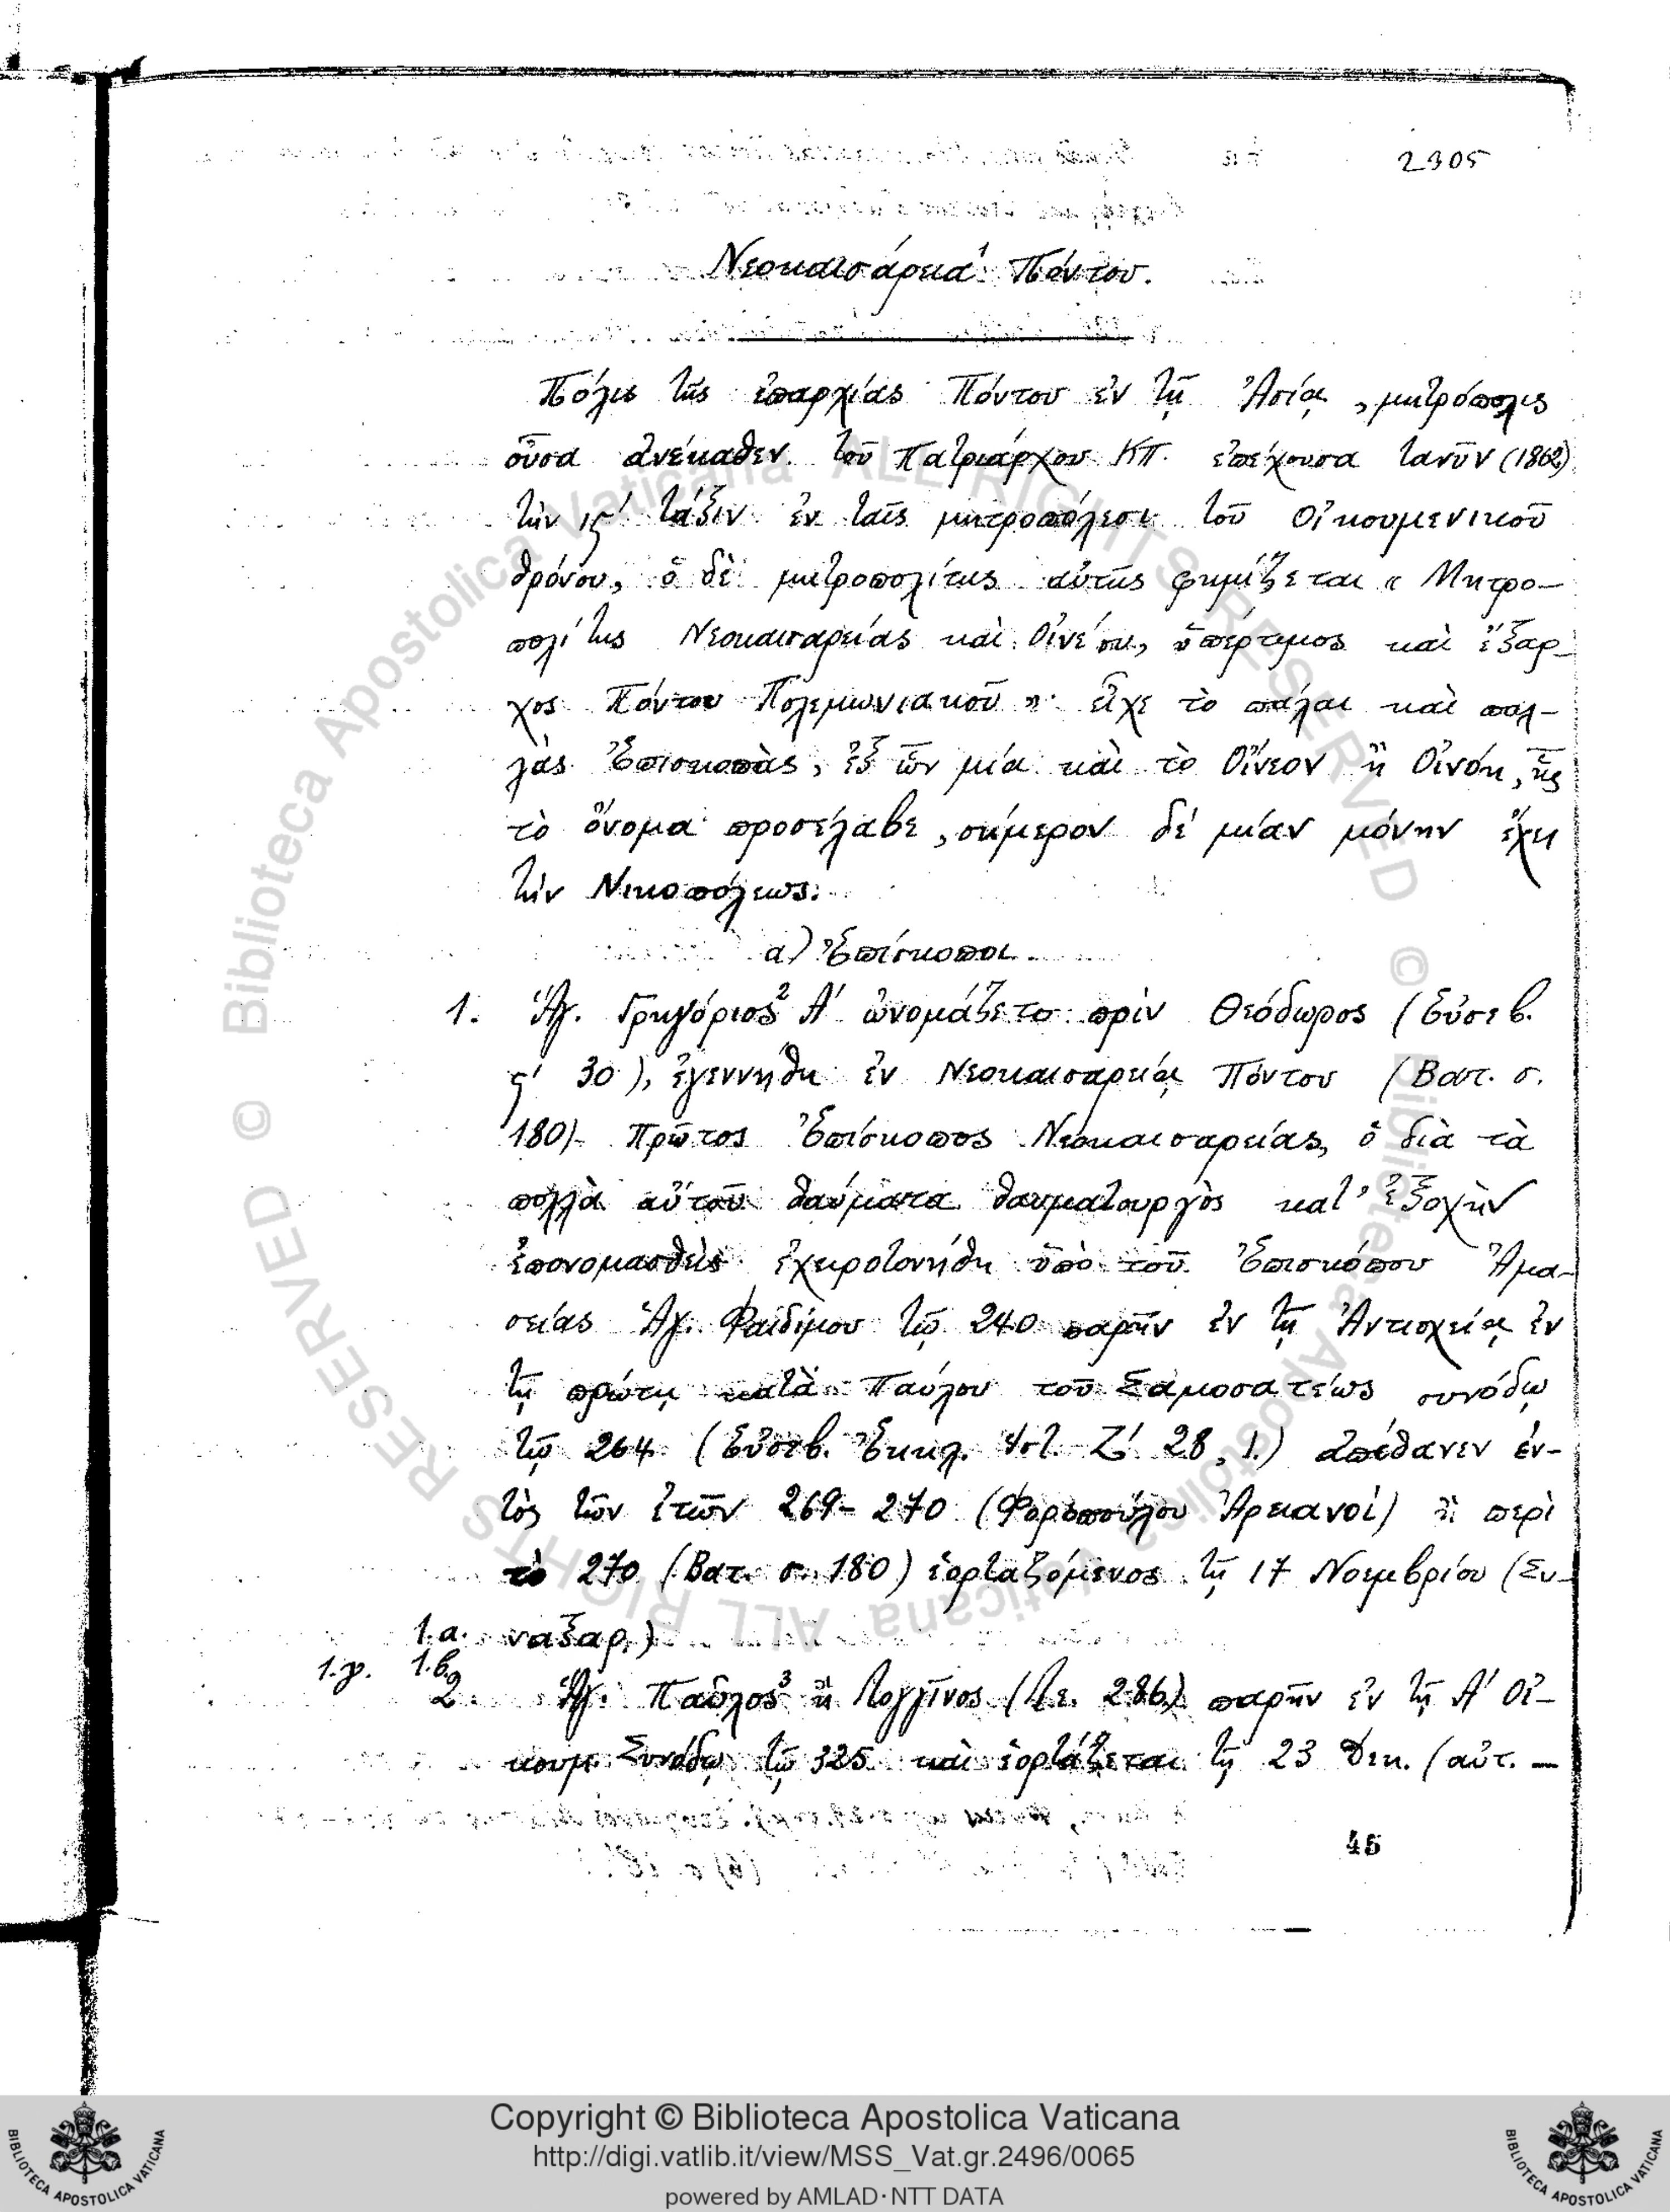 2305
Νεοκαισάρεια¹ Πόντου.
Πόλις τῆς ἐπαρχίας Πόντου ἐν τῇ Ἀσίᾳ, μητρόπολις
οὖσα ἀνέκαθεν τοῦ Πατριάρχου ΚΠ. ἐπέχουσα τανῦν (1862)
τὴν ιϛ΄ τάξιν ἐν ταῖς μητροπόλεσι τοῦ Οἰκουμενικοῦ
θρόνου, ὁ δὲ μητροπολίτης αὐτῆς φημίζεται « Μητρο-
πολίτης Νεοκαισαρείας καὶ Οἰνέου, ὑπέρτιμος καὶ ἔξαρ-
χος Πόντου Πολεμωνιακοῦ »· εἶχε τὸ πάλαι καὶ πολ-
λὰς Ἐπισκοπὰς, ἐξ ὧν μία καὶ τὸ Οἴνεον ἢ Οἰνόη, ἧς
τὸ ὄνομα προσέλαβε, σήμερον δὲ μίαν μόνην ἔχει
τὴν Νικοπόλεως.
α) Ἐπίσκοποι.
1. Ἅγ. Γρηγόριος² Α΄ ὠνομάζετο πρὶν Θεόδωρος (Εὐσεβ.
ϛ΄ 30), ἐγεννήθη ἐν Νεοκαισαρείᾳ Πόντου (Βατ. σ.
180). Πρῶτος Ἐπίσκοπος Νεοκαισαρείας, ὁ διὰ τὰ
πολλὰ αὐτοῦ θαύματα θαυματουργὸς κατ' ἐξοχὴν
ἐπονομασθεὶς ἐχειροτονήθη ὑπὸ τοῦ Ἐπισκόπου Ἀμα-
σείας Ἁγ. Φαιδίμου τῷ 240 παρῆν ἐν τῇ Ἀντιοχείᾳ ἐν
τῇ πρώτῃ κατὰ Παύλου τοῦ Σαμοσατέως συνόδῳ
τῷ 264 (Εὐσεβ. Ἐκκλ. Ἱστ. Ζ΄ 28, 1.) ἀπέθανεν ἐν-
τὸς τῶν ἐτῶν 269-270 (Φαρμπούλου Ἀρειανοὶ) ἢ περὶ
τὸ 270 (Βατ. σ. 180) ἑορταζόμενος τῇ 17 Νοεμβρίου (Συ-
1.α. ναξαρ.)
1.γ. 1.β.
2. Ἅγ. Παῦλος³ ἢ Λογγῖνος (Γε. 286) παρῆν ἐν τῇ Α΄ Οἰ-
κουμ. Συνόδῳ τῷ 325 καὶ ἑορτάζεται τῇ 23 Δεκ. (αὐτ. —
45
© Biblioteca Apostolica Vaticana ALL RIGHTS RESERVED © Biblioteca Apostolica Vaticana ALL RIGHTS RESERVED
Copyright © Biblioteca Apostolica Vaticana
http://digi.vatlib.it/view/MSS_Vat.gr.2496/0065
powered by AMLAD·NTT DATA
BIBLIOTECA APOSTOLICA VATICANA
BIBLIOTECA APOSTOLICA VATICANA